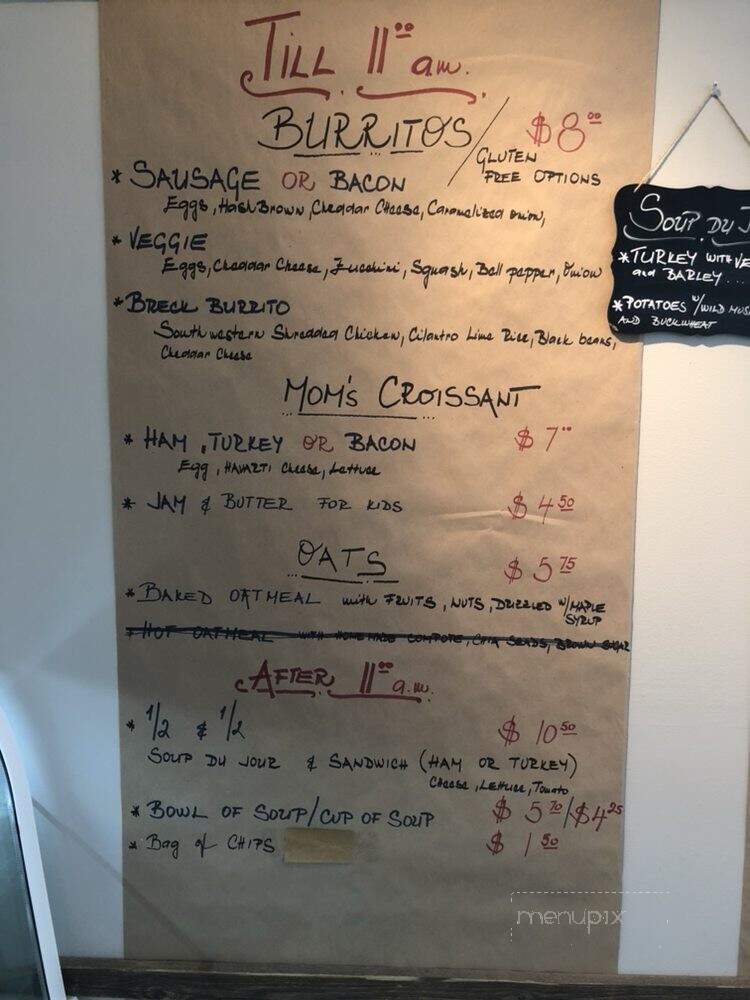 TILL 11⁰⁰ a.m.
BURRITOS / $8⁰⁰
GLUTEN
FREE OPTIONS
* SAUSAGE OR BACON
Eggs, Hash Brown, Cheddar Cheese, Caramelized onion,
* VEGGIE
Eggs, Cheddar Cheese, Zucchini, Squash, Bell papper, Onion
* BRECK BURRITO
Southwestern Shredded Chicken, Cilantro Lime Rice, Black beans,
Cheddar Cheese
MOM'S CROISSANT
* HAM, TURKEY OR BACON $7⁰⁰
Egg, HAVARTI Cheese, Lettuce
* JAM & BUTTER FOR KIDS $4⁵⁰
OATS $5⁷⁵
* BAKED OATMEAL with FRUITS, NUTS, DRIZZLED W/MAPLE
SYRUP
* HOT OATMEAL WITH HOME MADE COMPOTE, CHIA SEADS, BROWN SUGAR
AFTER 11⁰⁰ a.m.
* 1/2 & 1/2 $10⁵⁰
SOUP DU JOUR & SANDWICH (HAM OR TURKEY)
Cheese, Lettuce, Tomato
* BOWL OF SOUP/CUP OF SOUP $5⁷⁰/$4²⁵
* Bag of CHIPS $1⁵⁰
SOUP DU J
* TURKEY WITH VE
and BARLEY...
* POTATOES W/WILD MUS
AND BUCKWHEAT
menupix